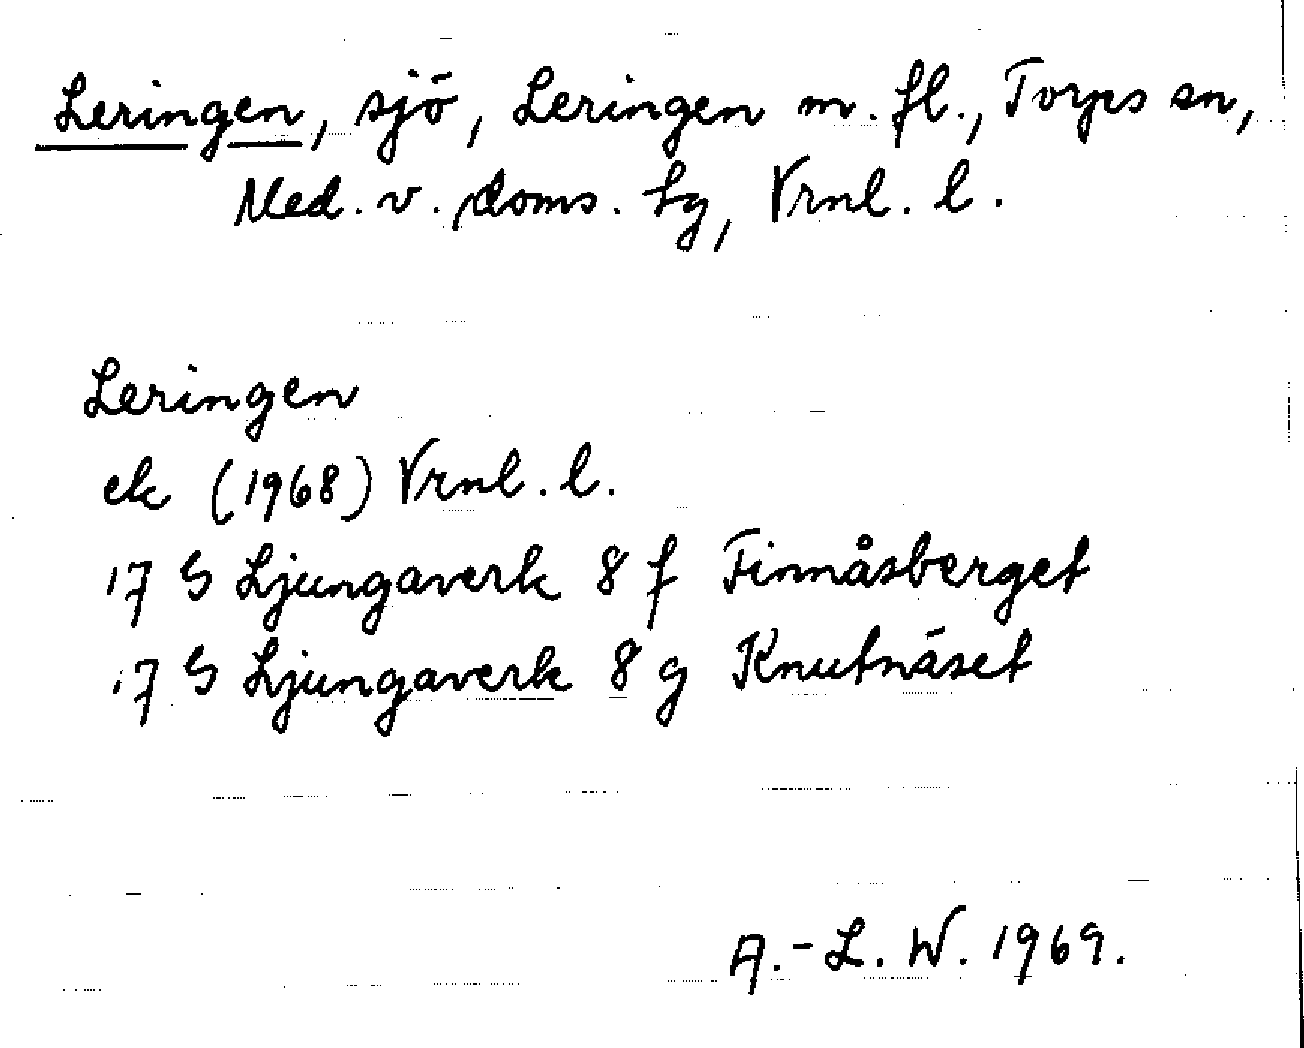 Leringen, sjö, Leringen m. fl., Torps sn,
Med. v. doms. tg, Vrnl. l.
Leringen
ek (1968) Vrnl. l.
17 G Ljungaverk 8 f Finnåsberget
17 G Ljungaverk 8 g Knutnäset
A.-L. W. 1969.